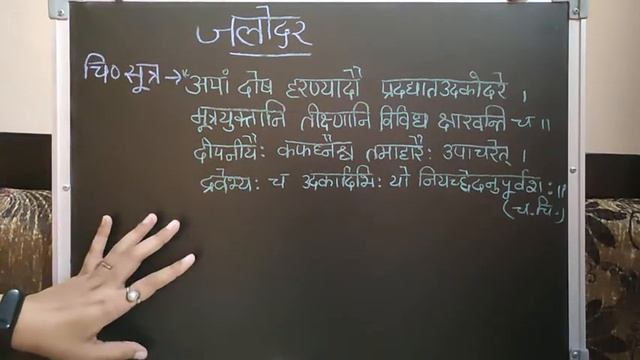 जलोदर
चि० सूत्र → " अपां दोष हरण्यादौ प्रदधातउदकोदरे ।
मूत्रयुक्तानि तीक्ष्णानि विविध क्षारवन्ति च ॥
दीपनीयैः कफघ्नैश्च तमाहारैः उपाचरेत् ।
द्रवेभ्यः च उदकादिभिः यो नियच्छेदनुपूर्वशः ॥
(च. चि.)